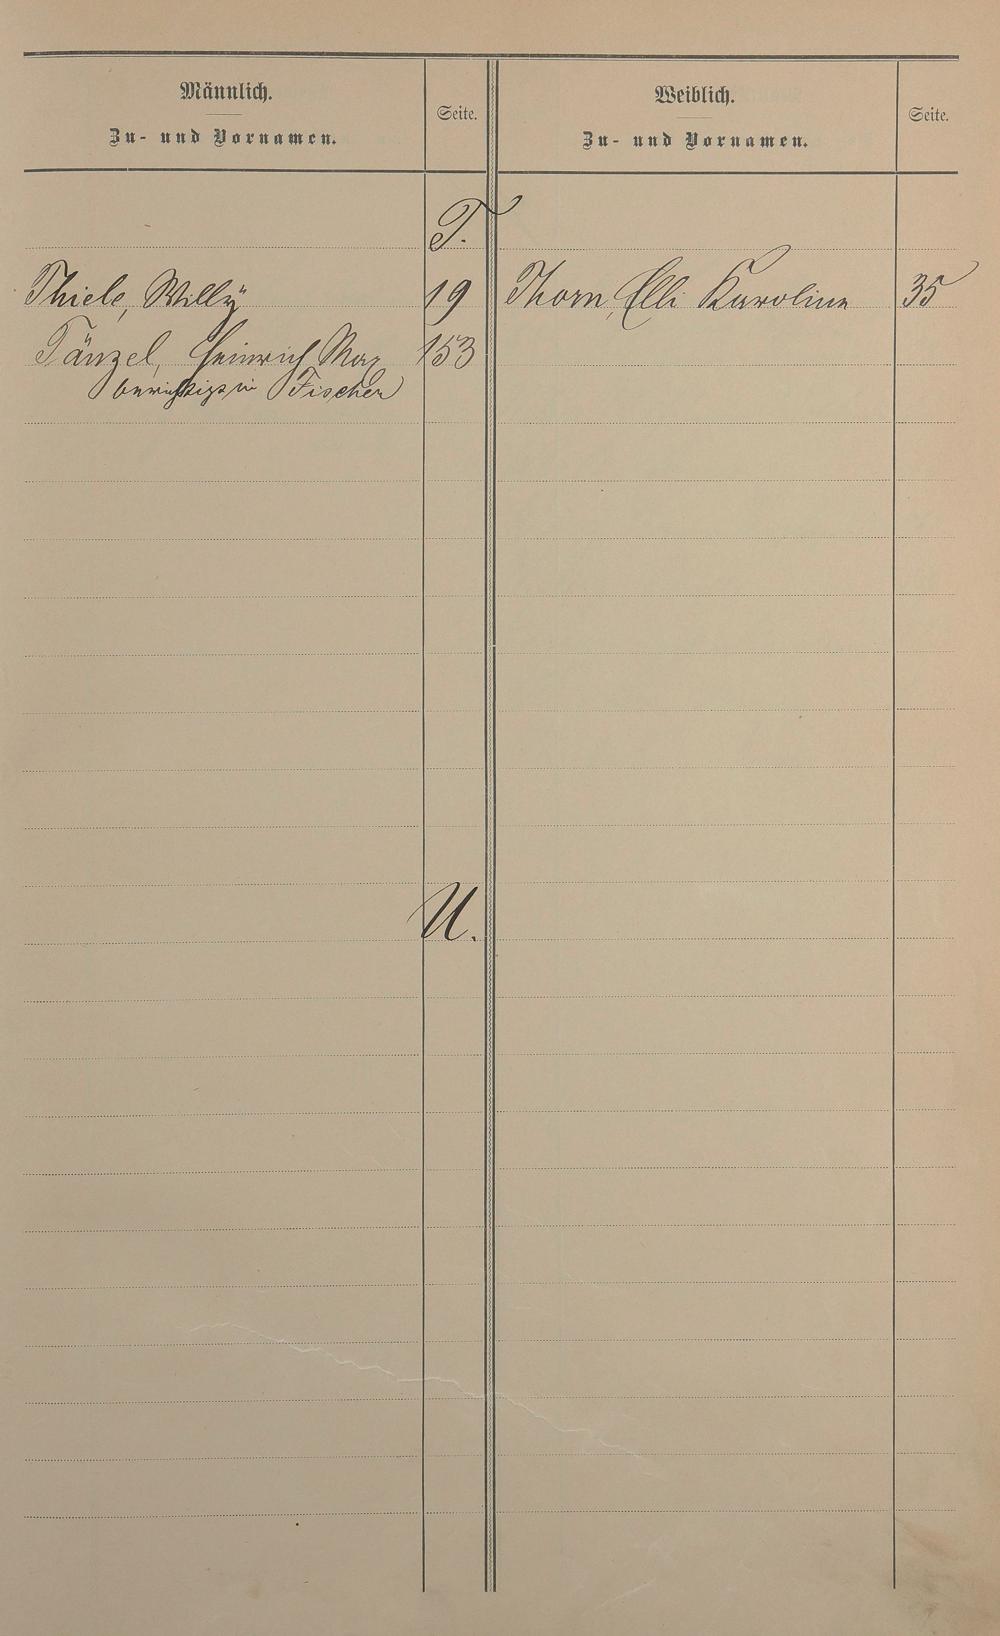 Männlich. Weiblich.
Seite. Seite.
Zu- und Vornamen. Zu- und Vornamen.
T.
Thiele, Willÿ 19 Thorn, Elli Karoline 35
Tänzel, Heinrich Max 153
berichtigt in Fischer
U.